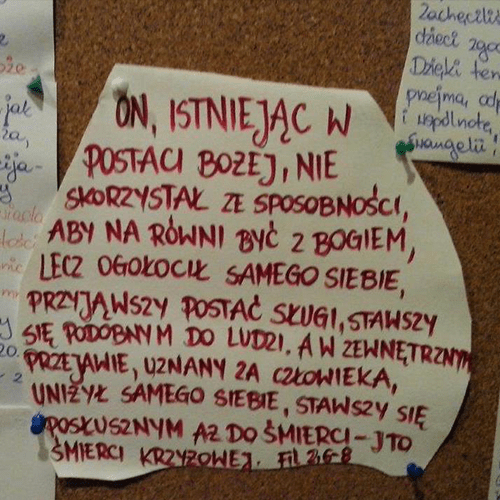 ON, ISTNIEJĄC W
POSTACI BOŻEJ, NIE
SKORZYSTAŁ ZE SPOSOBNOŚCI,
ABY NA RÓWNI BYĆ Z BOGIEM,
LECZ OGOŁOCIŁ SAMEGO SIEBIE,
PRZYJĄWSZY POSTAĆ SŁUGI, STAWSZY
SIĘ PODOBNYM DO LUDZI. A W ZEWNĘTRZNYM
PRZEJAWIE, UZNANY ZA CZŁOWIEKA,
UNIŻYŁ SAMEGO SIEBIE, STAWSZY SIĘ
POSŁUSZNYM AŻ DO ŚMIERCI - I TO
ŚMIERCI KRZYŻOWEJ. Fil 2,6-8
Zachęcili
dzieci
Dzięki
i wspólnotę,
Ewangelii!
jak